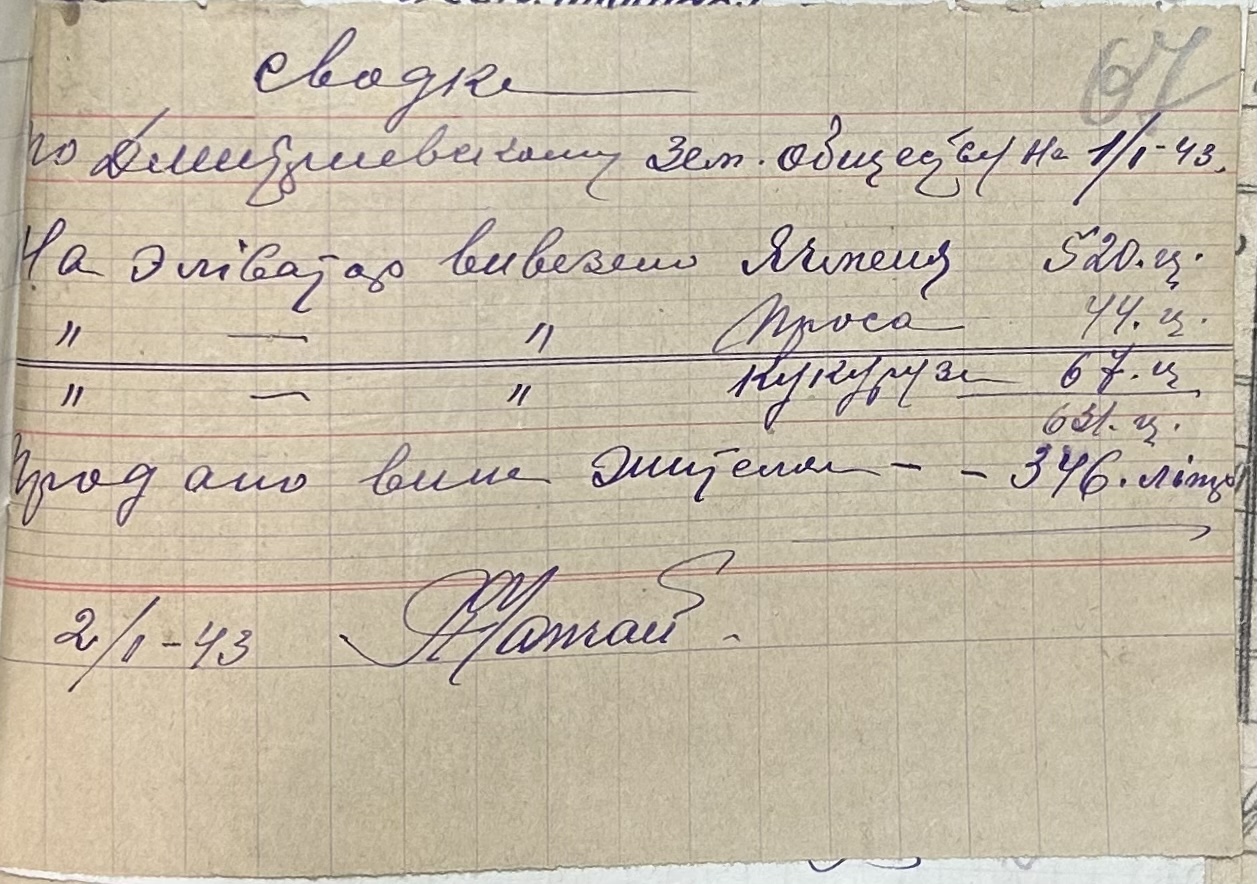 Сводка
67
по Дмитриевскому Зем. обществу на 1/I-43.
На Элiватор вивезено Ячменя 520.ц.
" — " Проса 44.ц.
" — " Кукурузи 67.ц
631.ц.
Продано вина жителям - - 346.лiтр
2/I-43